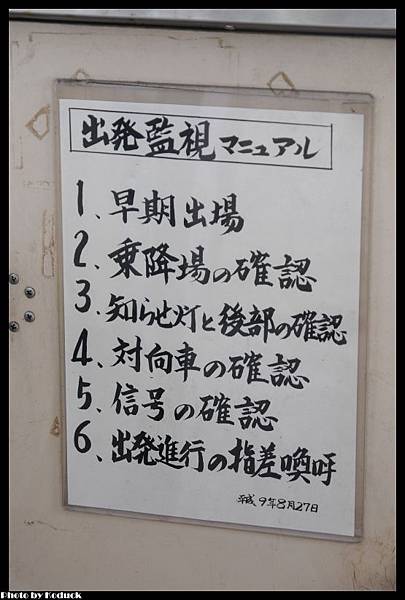 出発監視マニュアル
1、早期出場
2、乗降場の確認
3、知らせ灯と後部の確認
4、対向車の確認
5、信号の確認
6、出発進行の指差喚呼
平成9年8月27日
Photo by Koduck